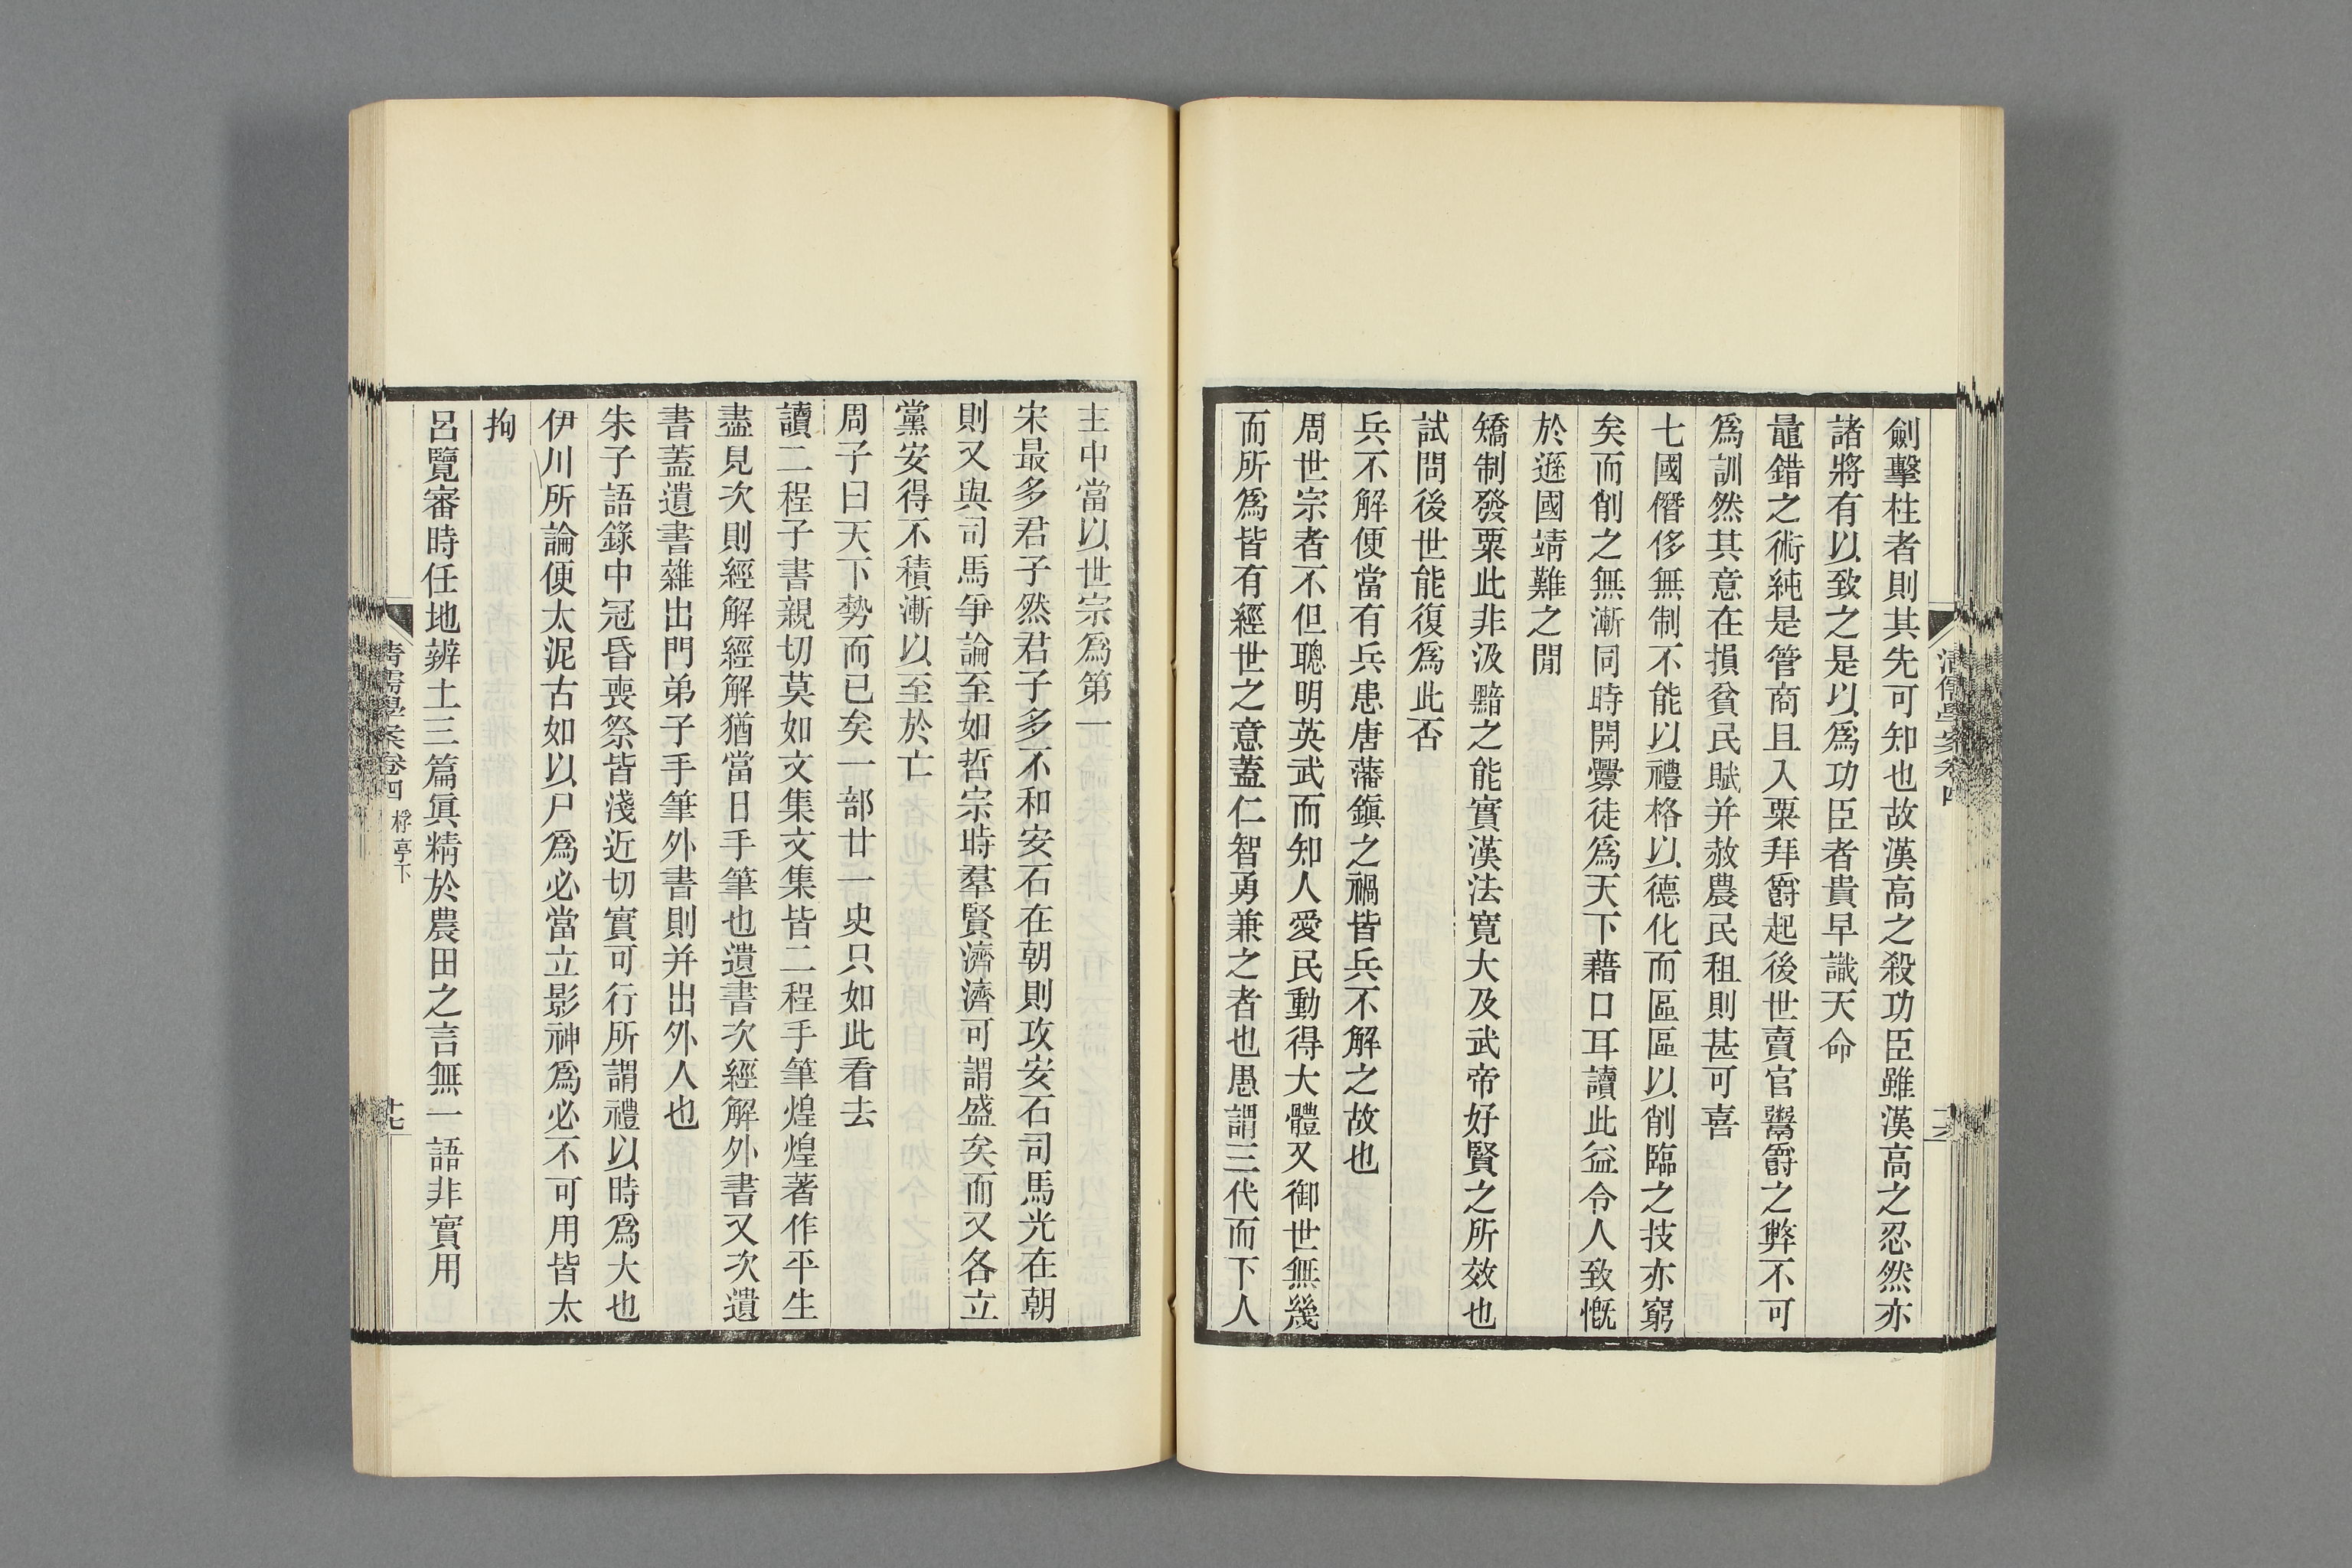 劍擊柱者則其先可知也故漢高之殺功臣雖漢高之忍然亦
諸將有以致之是以爲功臣者貴早識天命
鼂錯之術純是管商且入粟拜爵起後世賣官鬻爵之弊不可
爲訓然其意在損貧民賦并赦農民租則甚可喜
七國僭侈無制不能以禮格以德化而區區以削臨之技亦窮
矣而削之無漸同時開釁徒爲天下藉口耳讀此益令人致慨
於遜國靖難之閒
矯制發粟此非汲黯之能實漢法寬大及武帝好賢之所效也
試問後世能復爲此否
兵不解便當有兵患唐藩鎭之禍皆兵不解之故也
周世宗者不但聰明英武而知人愛民動得大體又御世無幾
而所爲皆有經世之意蓋仁智勇兼之者也愚謂三代而下人
清儒學案卷四
十六
主中當以世宗爲第一
宋最多君子然君子多不和安石在朝則攻安石司馬光在朝
則又與司馬爭論至如哲宗時羣賢濟濟可謂盛矣而又各立
黨安得不積漸以至於亡
周子曰天下勢而已矣一部廿一史只如此看去
讀二程子書親切莫如文集文集皆二程手筆煌煌著作平生
盡見次則經解經解猶當日手筆也遺書次經解外書又次遺
書蓋遺書雜出門弟子手筆外書則并出外人也
朱子語錄中冠昏喪祭皆淺近切實可行所謂禮以時爲大也
伊川所論便太泥古如以尸爲必當立影神爲必不可用皆太
拘
呂覽審時任地辨土三篇眞精於農田之言無一語非實用
清儒學案卷四 桴亭下
十七